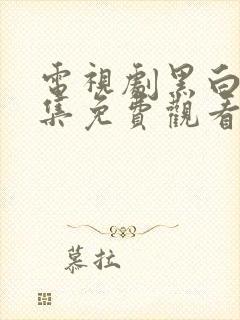 電視劇黑白
集免費觀看
慕拉